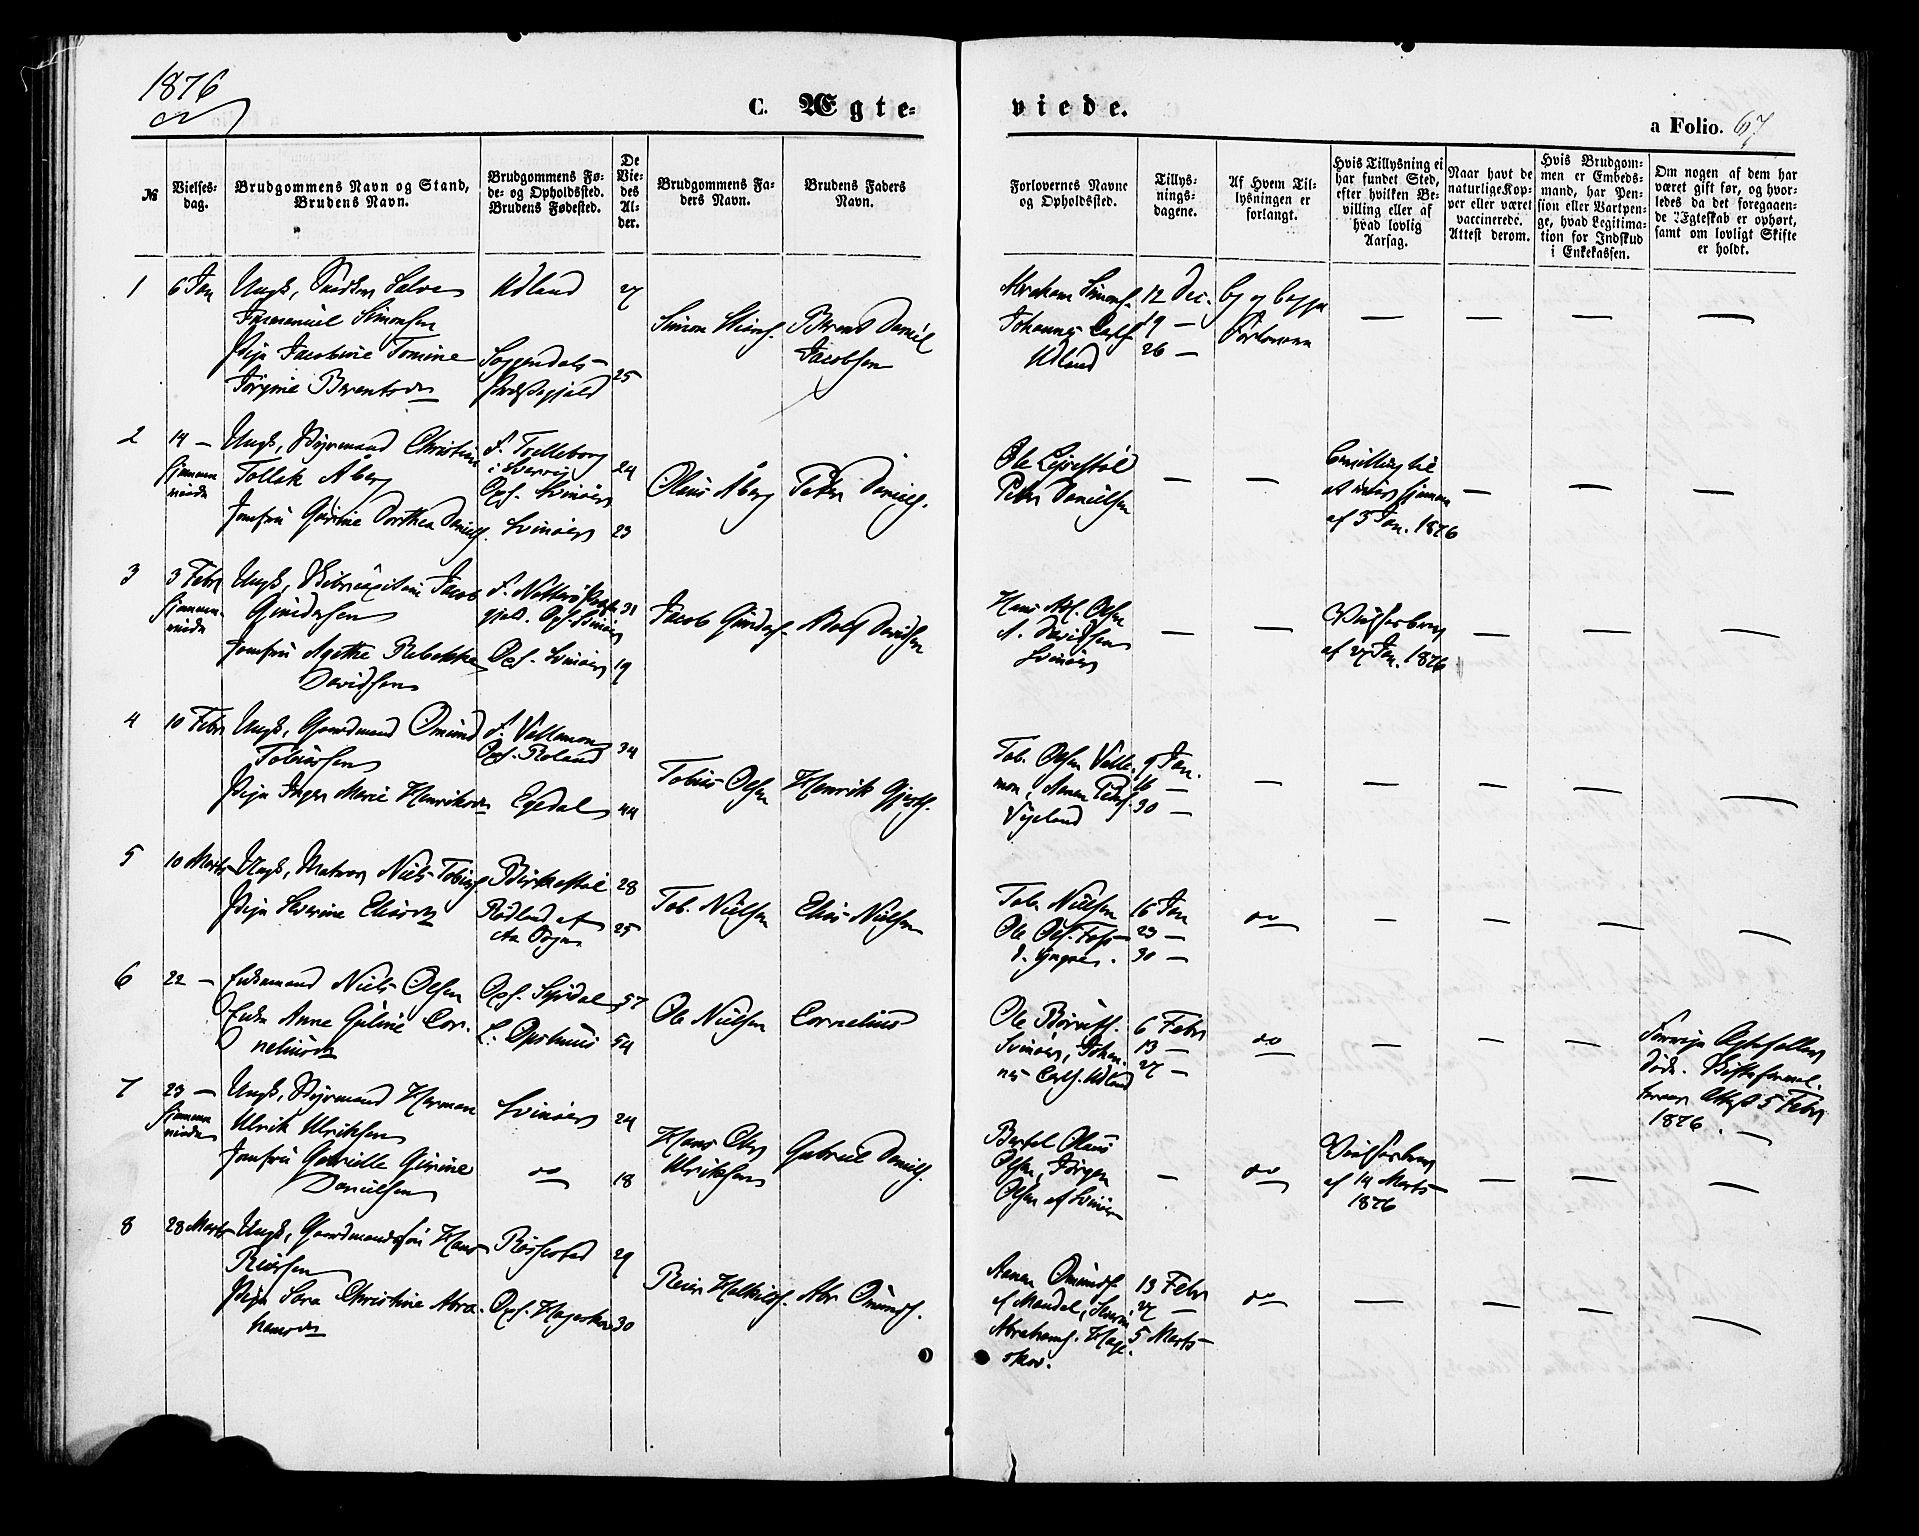 1876
C. Ægte-
viede.
a Folio. 67
№
Vielses-
dag.
Brudgommens Navn og Stand,
Brudens Navn.
Brudgommens Fø-
de- og Opholdssted.
Brudens Fødested.
De
Vie-
des
Al-
der.
Brudgommens Fa-
ders Navn.
Brudens Faders
Navn.
Forlovernes Navne
og Opholdssted.
Tillys-
nings-
dagene.
Af Hvem Til-
lysningen er
forlangt.
Hvis Tillysning ei
har fundet Sted,
efter hvilken Be-
villing eller af
hvad lovlig
Aarsag.
Naar havt de
naturlige Kop-
per eller været
vaccinerede.
Attest derom.
Hvis Brudgom-
men er Embeds-
mand, har Pen-
sion eller Vartpen-
ge, hvad Legitima-
tion for Indskud
i Enkekassen.
Om nogen af dem har
været gift før, og hvor-
ledes da det foregaaen-
de Ægteskab er ophørt,
samt om lovligt Skifte
er holdt.
1
6 Jan
Ungk, Salve
Immanuel Simonsen
Pige Jacobine Tomine
Jørgine Berentsdr
Udland
Soggendals
Præstegjeld
27
25
Simon
Berent Daniel
Jacobsen
Abraham Simons.
Johannes Carls.
Udland
12 Dec.
19 —
26 —
Forloveren
— — — —
2
14 —
hjemme
viede
Ungk, Styrmand Christian
Tollak Åberg
Jomfru Gurine Dorthea Daniels.
F. Trelleborg
i Sverrig
Oph. Svinøer
Svinøer
24
23
Olaus Åberg
Peter Daniels.
Ole
Peter Danielsen
—
—
Bevilling til
at vies hjemme
af 5 Jan. 1876
— — —
3
3 Febr
hjemme-
viede
Ungk, Jacob
Gundersen
Jomfru Agathe Rebekka
Davidsen
F. Nøtterø Præste
gjeld. Oph. Svinøer
Oph. Svinøer
31
19
Jacob Gunders.
Adolf Davidsen
Hans Ad. Olsen
A. Davidsen
Svinøer
—
—
af 27 Jan. 1876
— — —
4
10 Febr
Ungk, Gaardmand Omund
Tobiassen
Pige Inger Marie Henriksdr
F. Vallemon
Oph. Roland
Egedal
34
44
Tobias Olsen
Henrik
Tob. Olsen Valle-
mon, Anen Peds.
Vigeland
9 Jan.
16 —
30 —
— — — — —
5
10 Marts
Ungk, Matros Niels Tobias.
Pige Severine Eliasdr
Birkestøl
Rødland af
Aa Sogn
28
25
Tob. Nielsen
Elias Nielsen
Tob. Nielsen
Ole Ols. Foss
16 Jan
23 —
30 —
do
— — — —
6
22 —
Enkemand Niels Olsen
Enke Anne Guline Cor-
neliusdr
Oph. Syrdal
57
54
Ole Nielsen
Cornelius
Ole
Svinøer, Johan-
nes Carls. Udland
6 Febr
13 —
27 —
do
— — —
Forrige Ægtefæller
døde. Skifteforval-
terens Attest 5 Febr
1876.
7
23 —
hjemme
viede
Ungk, Styrmand Herman
Ulrik Ulriksen
Jomfru Gabrielle Gurine
Danielsen
Svinøer
do
24
18
Hans
Ulriksen
Gabriel Daniels.
Bertel Olaus
Olsen, Jørgen
Olsen af Svinøer
—
do
af 14 Marts
1876
— — —
8
28 Marts
Ungk, Gaardmandssøn Hans
Reiersen
Pige Sara Christine Abra-
hamsdr
Røssestad
Oph. Hageskov
29
30
Reier
Abr Omunds.
Aanen Omunds.
af Mandal,
Abrahams. Hage-
skov.
13 Febr
27 —
5 Marts
do
— — — —